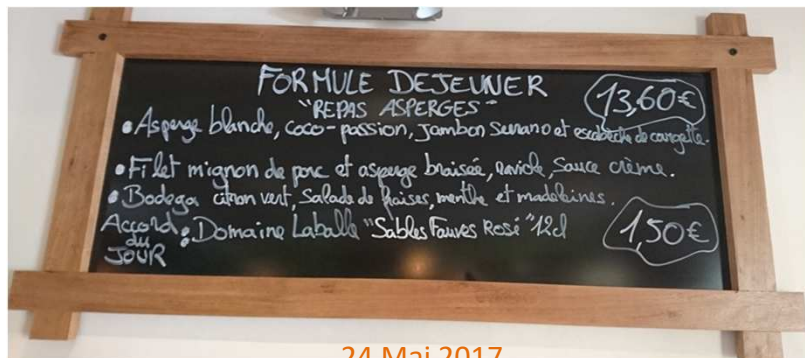 FORMULE DEJEUNER
"REPAS ASPERGES"
13,60€
• Asperge blanche, coco-passion, Jambon Serrano et escabeche de courgette.
• Filet mignon de porc et asperge braisée, raviole, Sauce crème.
• Bodega citron vert, Salade de fraises, menthe et madeleines.
Accord du JOUR : Domaine Laballe "Sables Fauves Rosé" 12cl
1,50€
24 Mai 2017